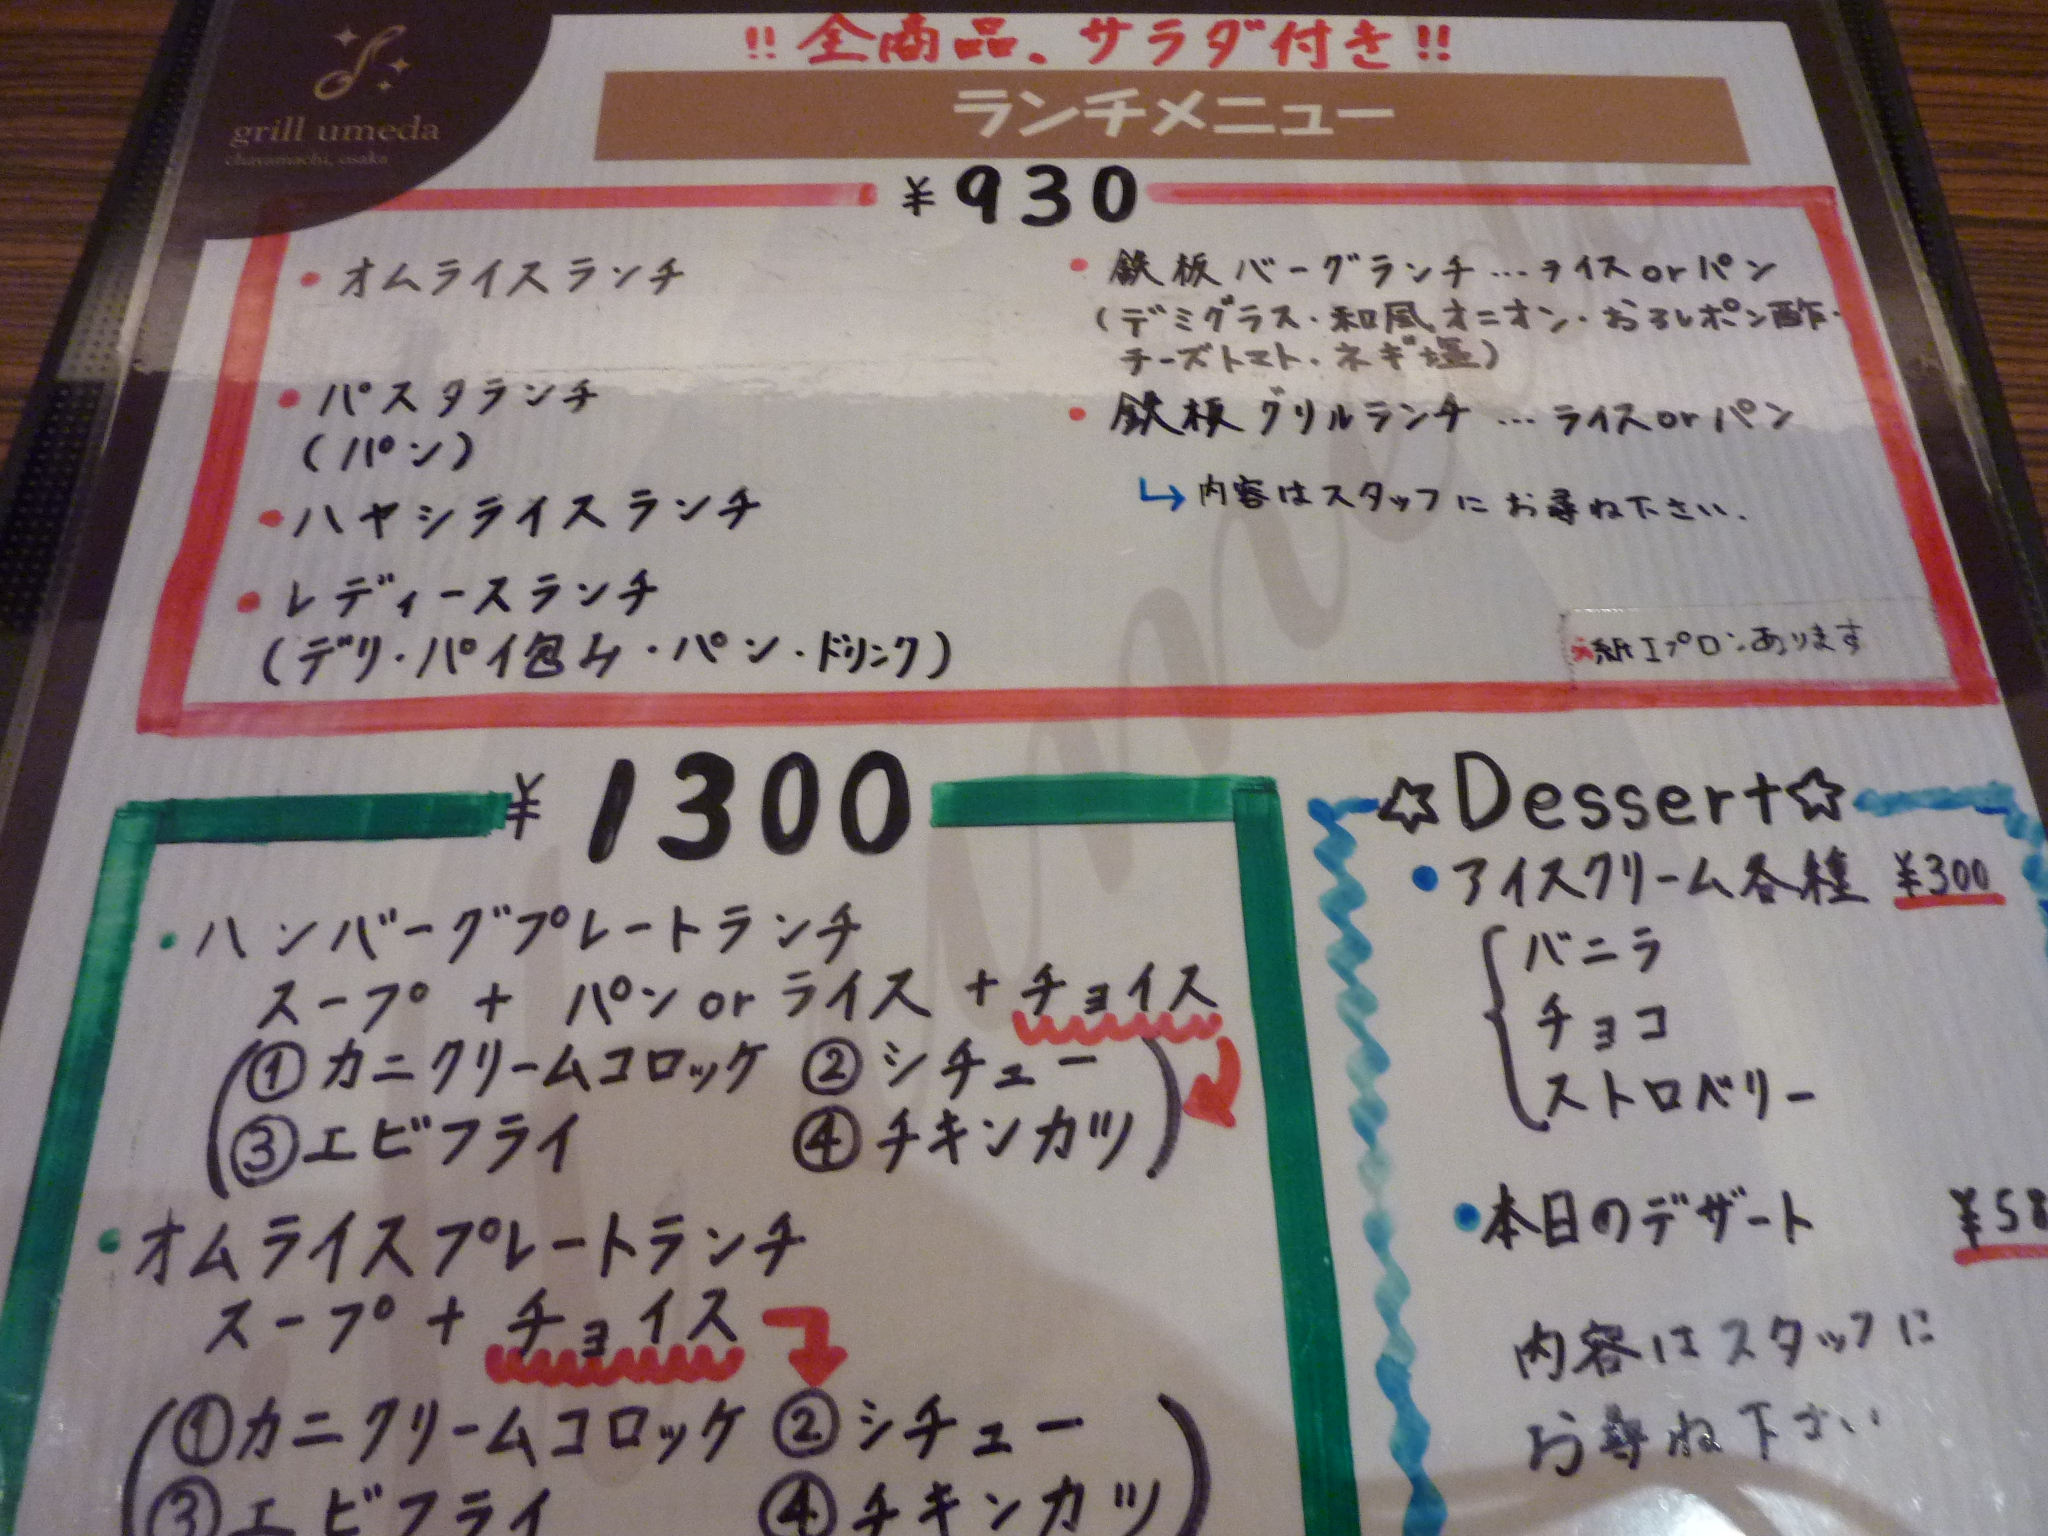 !! 全商品、サラダ付き !!
grill umeda
chayamachi, osaka
ランチメニュー
¥930
・オムライスランチ
・パスタランチ
(パン)
・ハヤシライスランチ
・レディースランチ
(デリ・パイ包み・パン・ドリンク)
・鉄板バーグランチ…ライスorパン
(デミグラス・和風オニオン・おろしポン酢・
チーズトマト・ネギ塩)
・鉄板グリルランチ…ライスorパン
↳内容はスタッフにお尋ね下さい.
※紙エプロンあります
¥1300
・ハンバーグプレートランチ
スープ + パンorライス + チョイス
(①カニクリームコロッケ ②シチュー
③エビフライ ④チキンカツ)
・オムライスプレートランチ
スープ + チョイス
(①カニクリームコロッケ ②シチュー
③エビフライ ④チキンカツ)
☆Dessert☆
・アイスクリーム各種 ¥300
バニラ
チョコ
ストロベリー
・本日のデザート ¥58
内容はスタッフに
お尋ね下さい
umeda